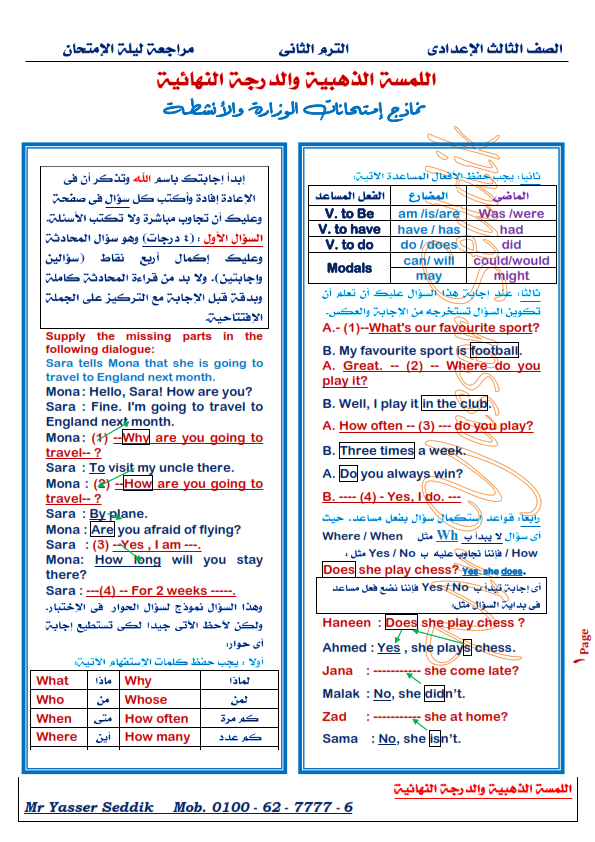 الصف الثالث الإعدادى الترم الثانى مراجعة ليلة الإمتحان
اللمسة الذهبية والدرجة النهائية
نماذج إمتحانات الوزارة والأنشطة
إبدأ إجابتك باسم الله وتذكر أن فى
الإعادة إفادة وأكتب كل سؤال فى صفحة
وعليك أن تجاوب مباشرة ولا تكتب الأسئلة.
السؤال الأول : (٤ درجات) وهو سؤال المحادثة
وعليك إكمال أربع نقاط (سؤالين
وإجابتين). ولا بد من قراءة المحادثة كاملة
وبدقة قبل الإجابة مع التركيز على الجملة
الإفتتاحية.
Supply the missing parts in the
following dialogue:
Sara tells Mona that she is going to
travel to England next month.
Mona : Hello, Sara! How are you?
Sara : Fine. I'm going to travel to
England next month.
Mona : (1) --Why are you going to
travel-- ?
Sara : To visit my uncle there.
Mona : (2) --How are you going to
travel-- ?
Sara : By plane.
Mona : Are you afraid of flying?
Sara : (3) --Yes , I am ---.
Mona: How long will you stay
there?
Sara : ---(4) -- For 2 weeks -----.
وهذا السؤال نموذج لسؤال الحوار فى الإختبار.
ولكن لاحظ الآتى جيدا لكى تستطيع إجابة
أى حوار:
أولا : يجب حفظ كلمات الإستفهام الآتية:
What ماذا Why لماذا
Who من Whose لمن
When متى How often كم مرة
Where أين How many كم عدد
ثانيا: يجب حفظ الأفعال المساعدة الآتية:
الفعل المساعد المضارع الماضى
V. to Be am /is/are Was /were
V. to have have / has had
V. to do do / does did
Modals can/ will could/would
may might
ثالثا: عند إجابة هذا السؤال عليك أن تعلم أن
تكوين السؤال تستخرجه من الإجابة والعكس.
A.- (1)--What's our favourite sport?
B. My favourite sport is football.
A. Great. -- (2) -- Where do you
play it?
B. Well, I play it in the club.
A. How often -- (3) --- do you play?
B. Three times a week.
A. Do you always win?
B. ---- (4) - Yes, I do. ---
رابعا: قواعد إستكمال سؤال بفعل مساعد. حيث
أى سؤال لا يبدأ ب Wh مثل Where / When
/ How فإننا نجاوب عليه ب Yes / No مثل :
Does she play chess? Yes, she does.
أى إجابة تبدأ ب Yes / No فإننا نضع فعل مساعد
فى بداية السؤال مثل:
Haneen : Does she play chess ?
Ahmed : Yes , she plays chess.
Jana : ----------- she come late?
Malak : No, she didn't.
Zad : ----------- she at home?
Sama : No, she isn't.
Page
١
اللمسة الذهبية والدرجة النهائية
Mr Yasser Seddik Mob. 0100 - 62 - 7777 - 6
Mr Yasser Seddik